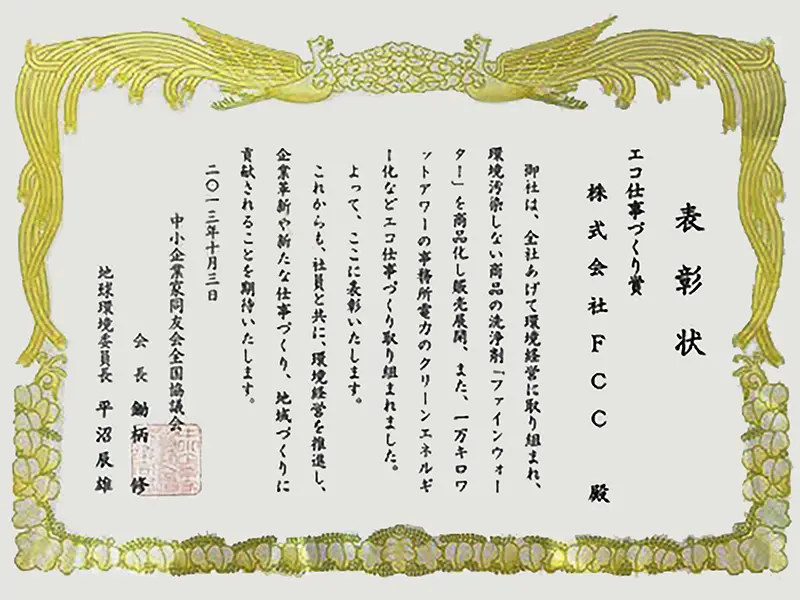 表彰状
エコ仕事づくり賞
株式会社FCC 殿
御社は、全社あげて環境経営に取り組まれ、
環境汚染しない商品の洗浄剤「ファインウォー
ター」を商品化し販売展開、また、一万キロワ
ットアワーの事務所電力のクリーンエネルギ
ー化などエコ仕事づくり取り組まれました。
よって、ここに表彰いたします。
これからも、社員と共に、環境経営を推進し、
企業革新や新たな仕事づくり、地域づくりに
貢献されることを期待いたします。
二〇一三年十月三日
中小企業家同友会全国協議会
会長 鋤柄 修
地球環境委員長 平沼辰雄